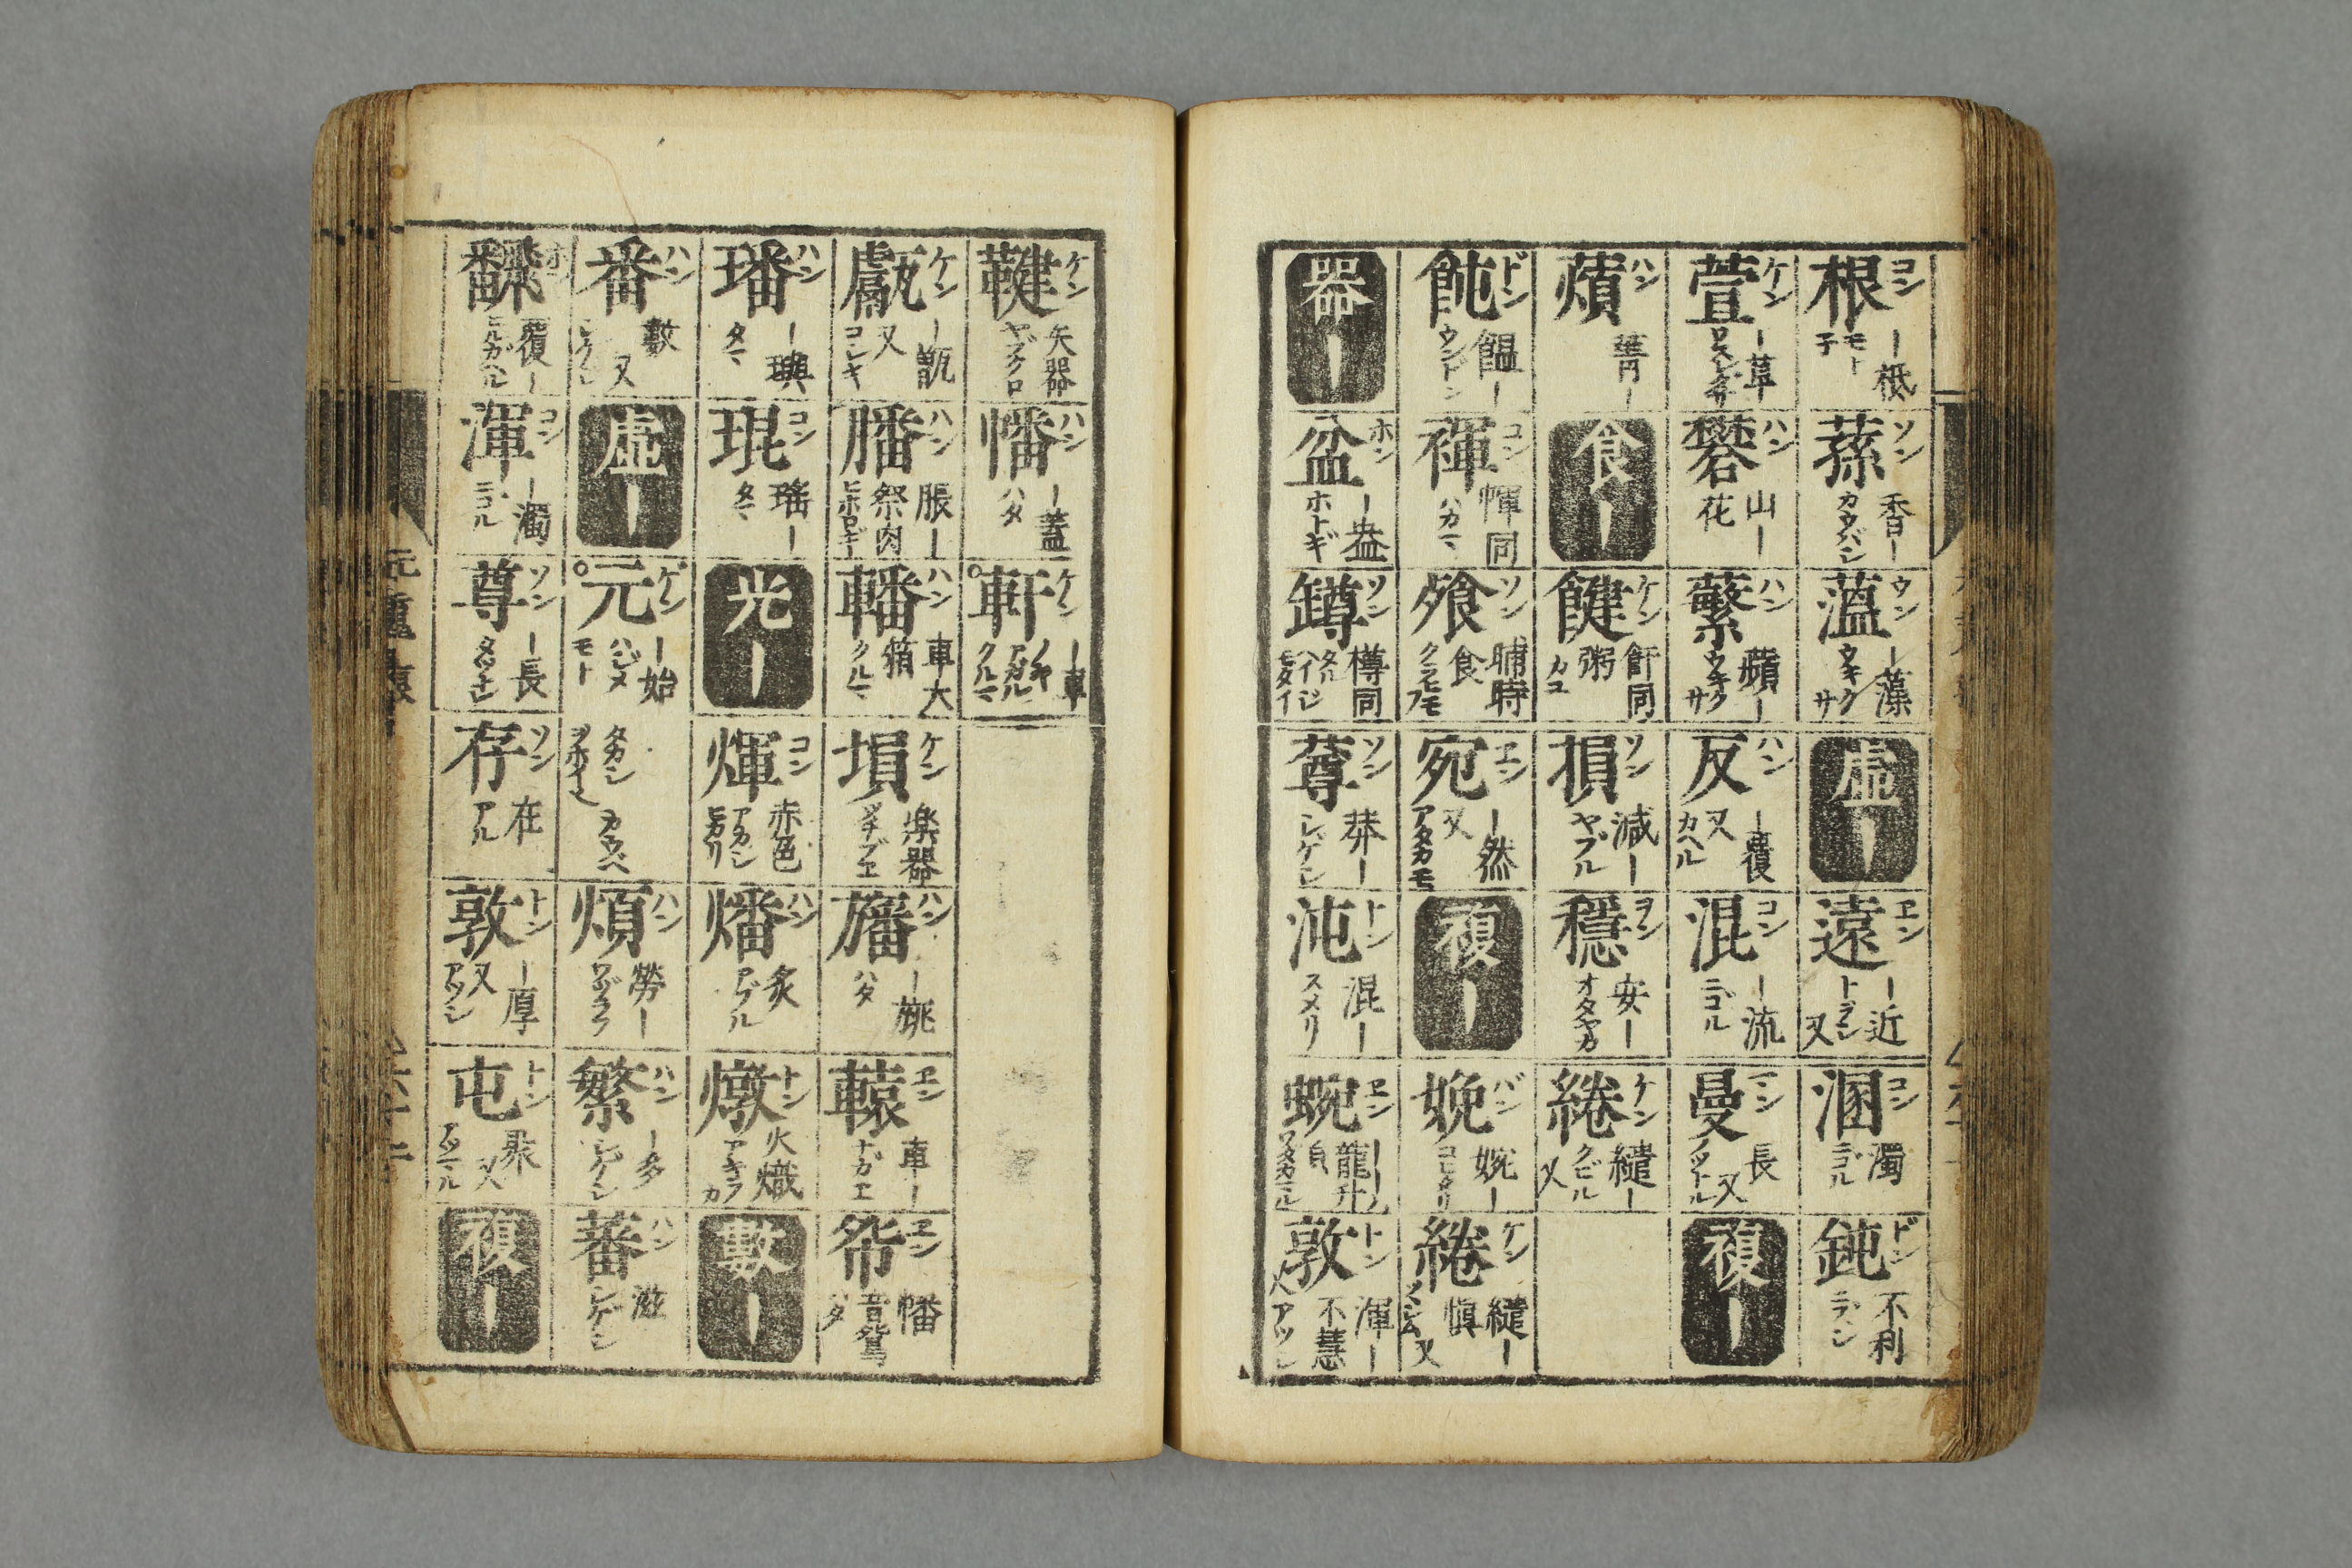 根 コン ―柢 モト 子
蓀 ソン 香― カウバシ
薀 ウン ―藻 ウキクサ
虚―
遠 ヱン ―近 トヲシ 又
溷 コン 濁 ニゴル
鈍 ドン 不利 ニブシ
萱 ケン ―草 ワスレグサ
礬 ハン 山― 花
蘩 ハン 蘋― ウキクサ
反 ハン ―覆 又 カヘル
混 コン ―流 ニゴル
曼 長 又
複―
蕡 ハン
食―
飦 ケン 飦同 粥 カユ
損 ソン 減― ヤブル
穩 ヲン 安― オダヤカ
綣 ケン 繾― クビル 又
飩 ドン 饂― ウンドン
褌 コン 幝同 ハカマ
飱 ソン 晡時 食
宛 ヱン ―然 又 アタカモ
複―
娩 バン 婉―
綣 ケン 繾― 慎 又
器―
盆 ホン ―盎 ホトギ
罇 ソン 樽同
莽― ソン シゲシ
沌 トン 混― スメリ
蜿 ヱン 龍
敦 トン 渾― 不慧 アツシ
鞬 ケン 矢器 ヤブクロ
幡 ハン ―蓋 ハタ
軒 ケン ―車 ノキ アガル クルマ
甗 ケン ―甑 又 コシキ
膰 ハン 脹― 祭肉 ヒホロギ
轓 ハン 車大箱 クルマ
塤 ケン 楽器 ツチブエ
旛 ハン ―旐 ハタ
轅 ヱン 車― ナガエ
帤 ヱン 幡 音鴛 ハタ
璠 ハン ―璵 タマ
琨 コン 瑤― タマ
光―
煇 コン 赤色 アカシ ヒカリ
燔 ハン 炙 アブル
燉 トン 火熾 アキラカ
數―
番 ハン 數 又
虚―
元 ゲン ―始 ハジメ モト
タカシ カウベ
煩 ハン 勞― ワヅラフ
繁 ハン ―多 シゲシ
蕃 ハン 滋 シゲシ
飜 ホン 覆― ヒルガヘル
渾 コン ―濁 ニゴル
尊 ソン ―長 タツトシ
存 ソン 在 アル
敦 トン ―厚 又 アツシ
屯 トン 聚 又 アツマル
複―